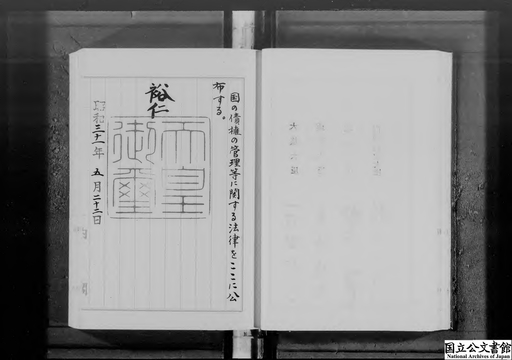 国の債権の管理等に関する法律をここに公
布する。
裕仁
天皇
御璽
昭和三十一年 五月二十二日
国立公文書館
National Archives of Japan